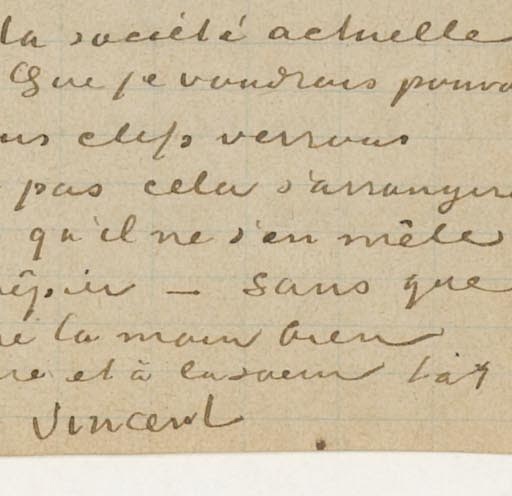 la société actuelle
Que je voudrais pouvo
us clefs verrous
pas cela s'arrangera
qu'il ne s'en mêle
sans que
la main bien
re et à la soeur
Vincent